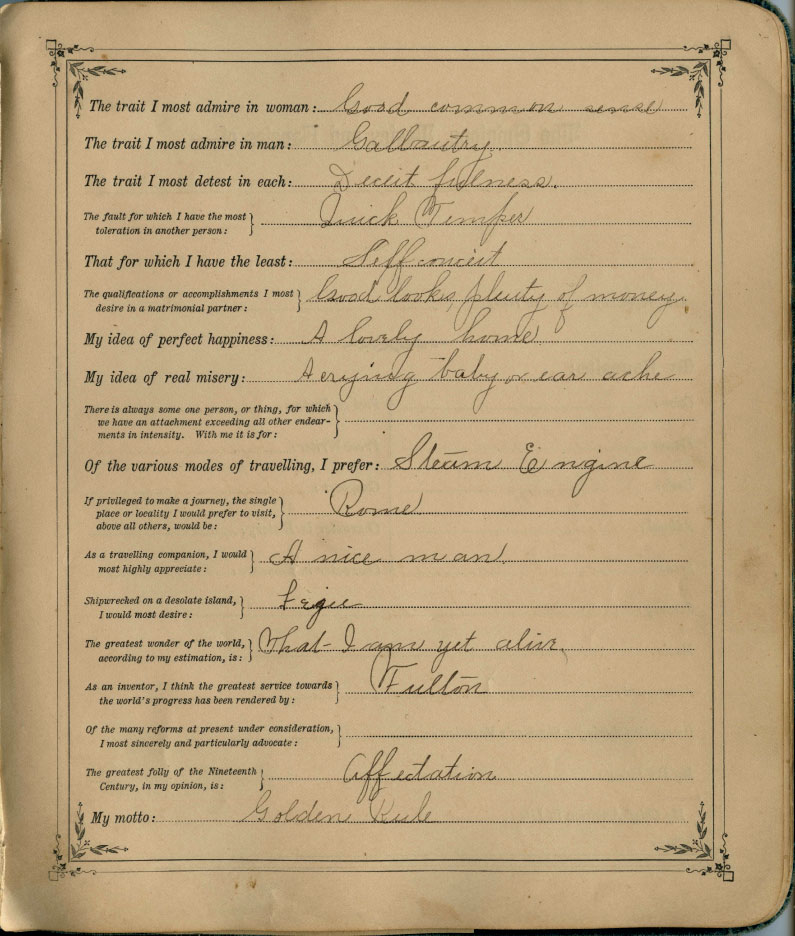 The trait I most admire in woman: Good common sense
The trait I most admire in man: Gallantry.
The trait I most detest in each: Deceit fulness.
The fault for which I have the most
toleration in another person: } Quick Temper
That for which I have the least: Self conceit
The qualifications or accomplishments I most
desire in a matrimonial partner: } Good looks, plenty of money.
My idea of perfect happiness: A lovely home.
My idea of real misery: A crying baby or ear ache
There is always some one person, or thing, for which
we have an attachment exceeding all other endear-
ments in intensity. With me it is for: }
Of the various modes of travelling, I prefer: Steam Engine
If privileged to make a journey, the single
place or locality I would prefer to visit,
above all others, would be: } Rome
As a travelling companion, I would
most highly appreciate: } A nice man.
Shipwrecked on a desolate island,
I would most desire: }
The greatest wonder of the world,
according to my estimation, is: } That I am yet alive.
As an inventor, I think the greatest service towards
the world's progress has been rendered by: } Fulton
Of the many reforms at present under consideration,
I most sincerely and particularly advocate: }
The greatest folly of the Nineteenth
Century, in my opinion, is: } Affectation
My motto: Golden Rule